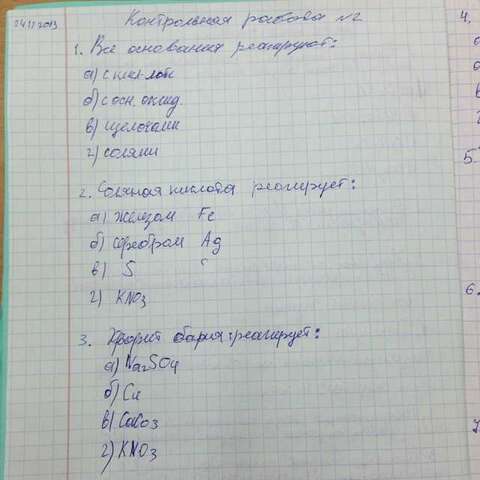 24.11.2013
Контрольная работа №2
1. Все основания реагируют:
а) с кислот
б) с осн. оксид.
в) щелочами
г) солями
2. Соляная кислота реагирует:
а) железом Fe
б) серебром Ag
в) S
г) KNO3
3. Хлорит бария реагирует:
а) Na2SO4
б) Cu
в) CaCO3
г) KNO3
4.
5.
6.
7.